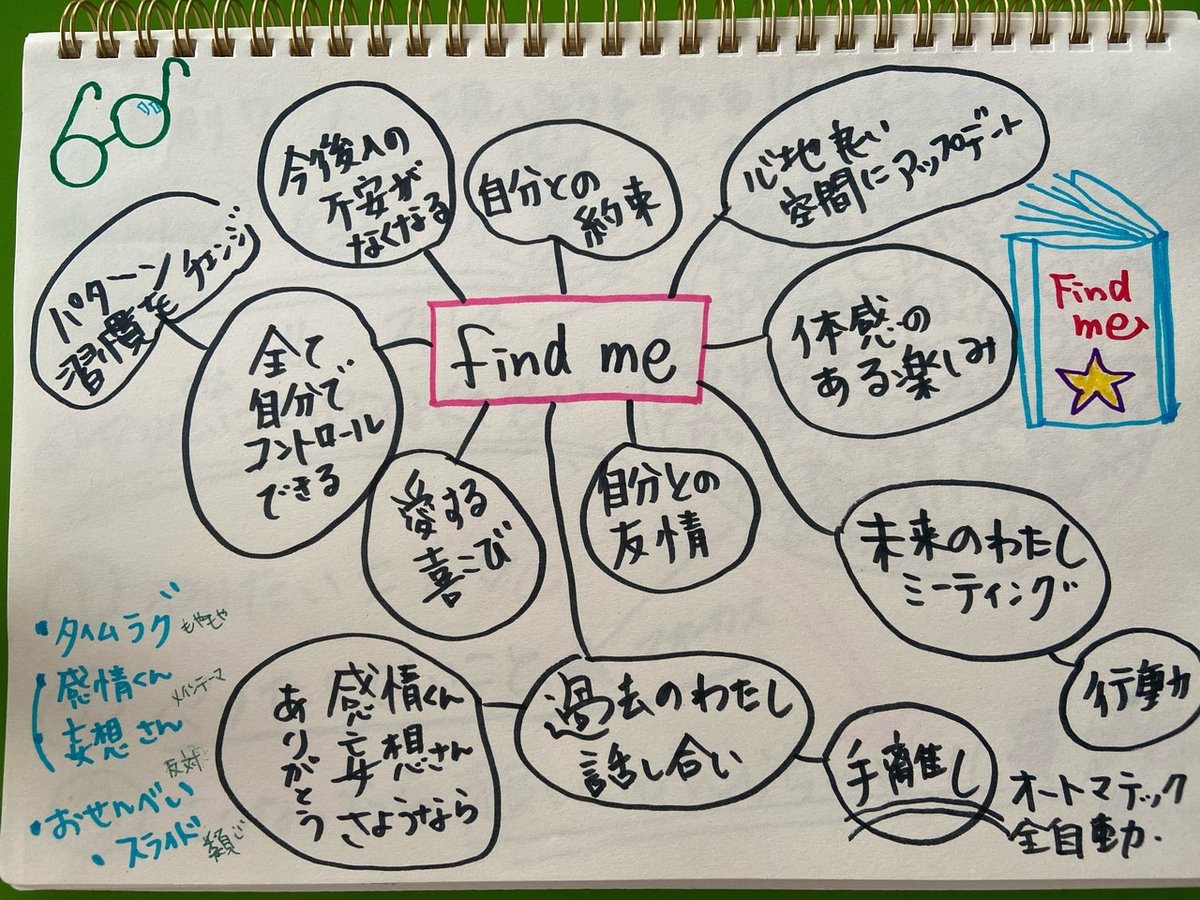 今後への
不安が
なくなる
自分との
約束
心地良い
空間にアップデート
パターン
習慣を
チェンジ
find me
体感の
ある楽しみ
Find
me
全て
自分で
コントロール
できる
愛する
喜こび
自分との
友情
未来のわたし
ミーティング
行動
・タイムラグ
もやもや
感情くん
メインテーマ
妄想さん
反対
・おせんべい
・スライド
感情くん
妄想さん
さようなら
ありがとう
過去のわたし
話し合い
手離し
オートマテック
全自動.